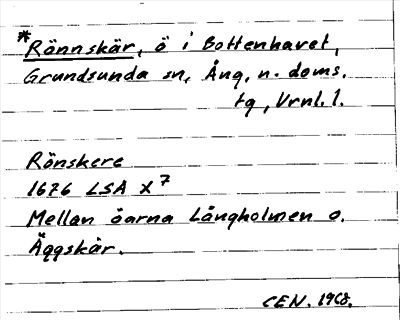 *Rönnskär, ö i Bottenhavet,
Grundsunda sn, Ång, n. doms.
tg, Vrnl. 1.
Rönskere
1676 LSA X7
Mellan öarna Långholmen o.
Äggskär.
CEN. 1968.